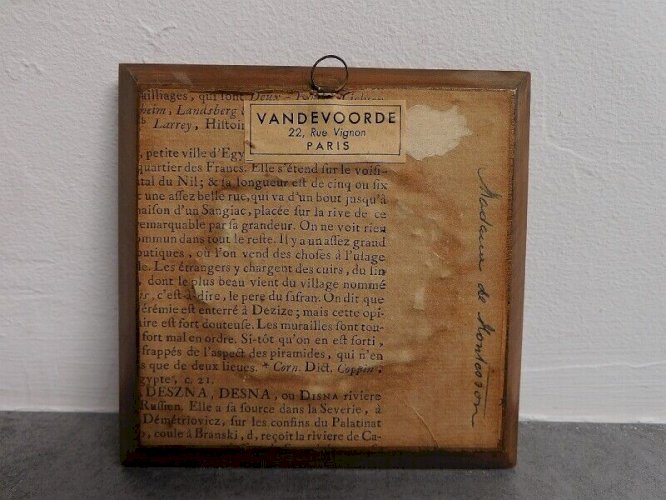 ailliages, qui font Deux-
heim, Landsberg
Larrey, Histoi
VANDEVOORDE
22, Rue Vignon
PARIS
, petite ville d'Egy
quartier des Francs. Elle s'étend sur le voisi-
tal du Nil; & sa longueur est de cinq ou six
une assez belle rue, qui va d'un bout jusqu'à
maison d'un Sangiac, placée sur la rive de ce
remarquable par sa grandeur. On ne voit rien
ommun dans tout le reste. Il y a un assez grand
outiques, où l'on vend des choses à l'usage
le. Les étrangers y chargent des cuirs, du lin
, dont le plus beau vient du village nommé
, c'est-à-dire, le pere du safran. On dit que
érémie est enterré à Dezize; mais cette opi-
ire est fort douteuse. Les murailles sont tou-
fort mal en ordre. Si-tôt qu'on en est sorti,
frappés de l'aspect des piramides, qui n'en
s que de deux lieues. * Corn. Dict. Coppin,
gypte, c. 21.
DESZNA, DESNA, ou DISNA riviere
Russien. Elle a sa source dans la Severie, à
Démétriovicz, sur les confins du Palatinat
, coule à Branski, d, reçoit la riviere de Ca-
Madame de Montesson